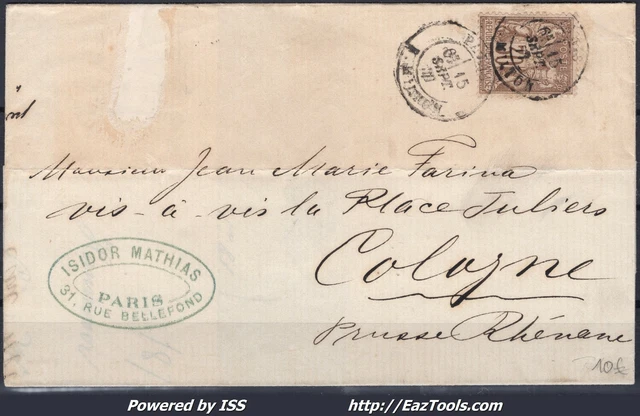 Monsieur Jean Marie Farina
vis-à-vis la Place Juliers
Cologne
Prusse Rhénane
ISIDOR MATHIAS
PARIS
31, RUE BELLEFOND
15
SEPT
15
SEPT
10€
Powered by ISS
http://EazTools.com